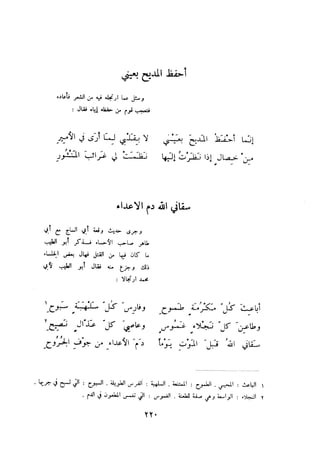 أحفظ المديح بعيني
وسئل عما ارتجله فيه من الشعر فأعاده
فتعجب قوم من حفظه إياه فقال :
إنَّمَا أحْفَظُ المَديحَ بعَيْني لا بقَلْبي لِمَا أرَى في الأميرِ
مِنْ خِصَالٍ إذا نَظَرْتُ إلَيْهَا نَظَمَتْ لي غَرَائبَ المَنْثُورِ
سقاني الله دم الاعداء
وجرى حديث وقعة أبي الساج مع أبي
طاهر صاحب الأحساء فذكر أبو الطيب
ما كان فيها من القتل فهال بعض الجلساء
ذلك وجزع منه فقال أبو الطيب لأبي
محمد ارتجالا :
أباعِثَ كلّ مَكْرُمَةٍ طَمُوحِ وفارِسَ كلّ سَلْهَبَةٍ سَبُوحِ ١
وطاعِنَ كلّ نَجْلاءٍ غَمُوسٍ وعاصِيَ كلّ عَذّالٍ نَصيحِ ٢
سَقاني اللهُ قَبْلَ المَوْتِ يَوْماً دَمَ الأعداءِ من جَوْفِ الجُرُوحِ
١ الباعث : المحيي . الطموح : الممتنعة . السلهبة : الفرس الطويلة . السبوح : التي تسبح في جريها .
٢ النجلاء : الواسعة وهي صفة للطعنة . الغموس : التي تغمس المطعون في الدم .
٢٢٠